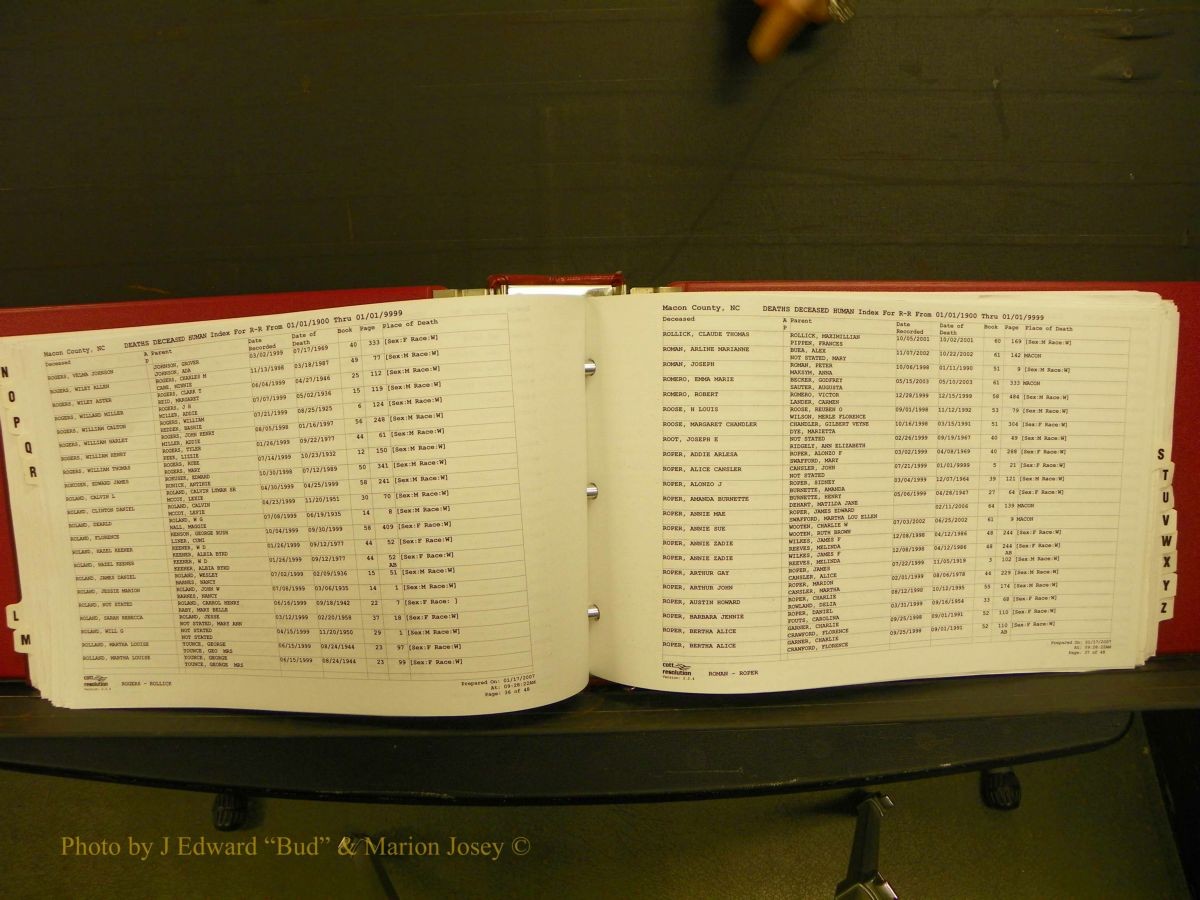 Macon County, NC DEATHS DECEASED HUMAN Index For R-R From 01/01/1900 Thru 01/01/9999
Deceased A Parent Date Recorded Date of Death Book Page Place of Death
P
ROGERS, VELMA JOHNSON JOHNSON, GROVER 03/02/1999 07/17/1969 40 333 [Sex:F Race:W]
JOHNSON, ADA
ROGERS, WILEY ALLEN ROGERS, CHARLES M 11/13/1998 03/18/1987 49 77 [Sex:M Race:W]
CANE, MINNIE
ROGERS, WILEY ASTER ROGERS, CLARK T 06/04/1999 04/27/1946 25 112 [Sex:M Race:W]
REID, MARGARET
ROGERS, WILLARD MILLER ROGERS, J H 07/07/1999 05/02/1936 15 119 [Sex:M Race:W]
MILLER, ADDIE
ROGERS, WILLIAM CALTON ROGERS, WILLIAM 07/21/1999 08/25/1925 6 124 [Sex:M Race:W]
ROGERS, WILLIAM HARLEY ROGERS, JOHN HENRY 08/05/1998 01/16/1997 56 248 [Sex:M Race:W]
MILLER, ADDIE
ROGERS, WILLIAM HENRY ROGERS, TYLER 01/26/1999 09/22/1977 44 61 [Sex:M Race:W]
PEEK, LIZZIE
ROGERS, WILLIAM THOMAS 07/14/1999 10/23/1932 12 150 [Sex:M Race:W]
ROGERS, MARY
ROKUSEK, EDWARD JAMES ROKUSEK, EDWARD 10/30/1998 07/12/1989 50 341 [Sex:M Race:W]
ROLAND, CALVIN L ROLAND, CALVIN LYMAN SR 04/30/1999 04/25/1999 58 241 [Sex:M Race:W]
MCCOY, LEXIE
ROLAND, CLINTON DANIEL ROLAND, CALVIN 04/23/1999 11/20/1951 30 70 [Sex:M Race:W]
ROLAND, DEARLD ROLAND, W G 07/08/1999 06/19/1935 14 8 [Sex:M Race:W]
HALL, MAGGIE
ROLAND, FLORENCE HENSON, GEORGE RUSH 10/04/1999 09/30/1999 58 409 [Sex:F Race:W]
LINER, CUMI
ROLAND, HAZEL KEENER KEENER, W D 01/26/1999 09/12/1977 44 52 [Sex:F Race:W]
KEENER, ALBIA BYRD
ROLAND, HAZEL KEENER KEENER, W D 01/26/1999 09/12/1977 44 52 [Sex:F Race:W]
KEENER, ALBIA BYRD AB
ROLAND, JAMES DANIEL ROLAND, WESLEY 07/02/1999 02/09/1936 15 51 [Sex:M Race:W]
BARNES, NANCY
ROLAND, JESSIE MARION ROLAND, JOHN W 07/08/1999 03/06/1935 14 1 [Sex:M Race:W]
BARNES, NANCY
ROLAND, NOT STATED ROLAND, CARROL HENRY 06/16/1999 09/18/1942 22 7 [Sex:F Race: ]
RABY, MARY BELLE
ROLAND, SARAH REBECCA ROLAND, JESSE 03/12/1999 02/20/1958 37 18 [Sex:F Race:W]
NOT STATED, MARY ANN
ROLAND, WILL G NOT STATED 04/15/1999 11/20/1950 29 1 [Sex:M Race:W]
NOT STATED
ROLLAND, MARTHA LOUISE YOUNCE, GEORGE 06/15/1999 08/24/1944 23 97 [Sex:F Race:W]
YOUNCE, GEO MRS
ROLLAND, MARTHA LOUISE YOUNCE, GEORGE 06/15/1999 08/24/1944 23 99 [Sex:F Race:W]
YOUNCE, GEORGE MRS
cott
resolution
ROGERS - ROLLICK
Prepared On: 01/17/2007
At: 09:28:22AM
Page: 36 of 48
Macon County, NC DEATHS DECEASED HUMAN Index For R-R From 01/01/1900 Thru 01/01/9999
Deceased A Parent Date Recorded Date of Death Book Page Place of Death
P
ROLLICK, CLAUDE THOMAS ROLLICK, MAXIMILLIAN 10/05/2001 10/02/2001 60 169 [Sex:M Race:W]
PIPPEN, FRANCES
ROMAN, ARLINE MARIANNE BUEA, ALEX 11/07/2002 10/22/2002 61 142 MACON
NOT STATED, MARY
ROMAN, JOSEPH ROMAN, PETER 10/06/1998 01/11/1990 51 9 [Sex:M Race:W]
MAKSYM, ANNA
ROMERO, EMMA MARIE BECKER, GODFREY 05/15/2003 05/10/2003 61 333 MACON
SAUTER, AUGUSTA
ROMERO, ROBERT ROMERO, VICTOR 12/28/1999 12/15/1999 58 484 [Sex:M Race:W]
LANDER, CARMEN
ROOSE, H LOUIS ROOSE, REUBEN O 09/01/1998 11/12/1992 53 79 [Sex:M Race:W]
WILSON, MERLE FLORENCE
ROOSE, MARGARET CHANDLER CHANDLER, GILBERT VEYNE 10/16/1998 03/15/1991 51 304 [Sex:F Race:W]
DYE, MARIETTA
ROOT, JOSEPH E NOT STATED 02/26/1999 09/19/1967 40 49 [Sex:M Race:W]
RIDGELY, ANN ELIZABETH
ROPER, ADDIE ARLESA ROPER, ALONZO F 03/02/1999 04/08/1969 40 288 [Sex:F Race:W]
SWAFFORD, MARY
ROPER, ALICE CANSLER CANSLER, JOHN 07/21/1999 01/01/9999 5 21 [Sex:F Race:W]
NOT STATED
ROPER, ALONZO J ROPER, SIDNEY 03/04/1999 12/07/1964 39 121 [Sex:M Race:W]
BURNETTE, AMANDA
ROPER, AMANDA BURNETTE BURNETTE, HENRY 05/06/1999 04/28/1947 27 64 [Sex:F Race:W]
DEHART, MATILDA JANE
ROPER, ANNIE MAE ROPER, JAMES EDWARD 02/11/2006 64 139 MACON
SWAFFORD, MARTHA LOU ELLEN
ROPER, ANNIE SUE WOOTEN, CHARLIE W 07/03/2002 06/25/2002 61 9 MACON
WOOTEN, RUTH BROWN
ROPER, ANNIE ZADIE WILKES, JAMES F 12/08/1998 04/12/1986 48 244 [Sex:F Race:W]
REEVES, MELINDA
ROPER, ANNIE ZADIE WILKES, JAMES F 12/08/1998 04/12/1986 48 244 [Sex:F Race:W]
REEVES, MELINDA AB
ROPER, ARTHUR GAY ROPER, JAMES 07/22/1999 11/05/1919 3 102 [Sex:M Race:W]
CANSLER, ALICE
ROPER, ARTHUR JOHN ROPER, MARION 02/01/1999 08/06/1978 44 229 [Sex:M Race:W]
CANSLER, MARTHA
ROPER, AUSTIN HOWARD ROPER, CHARLIE 08/12/1998 10/12/1995 55 174 [Sex:M Race:W]
ROWLAND, DELIA
ROPER, BARBARA JENNIE ROPER, DANIEL 03/31/1999 09/16/1954 33 68 [Sex:F Race:W]
FOUTS, CAROLINA
ROPER, BERTHA ALICE GARNER, CHARLIE 09/25/1998 09/01/1991 52 110 [Sex:F Race:W]
CRAWFORD, FLORENCE
ROPER, BERTHA ALICE GARNER, CHARLIE 09/25/1998 09/01/1991 52 110 [Sex:F Race:W]
CRAWFORD, FLORENCE AB
cott
resolution
ROMAN - ROPER
Prepared On: 01/17/2007
At: 09:28:22AM
Page: 37 of 48
N
O
P
Q
R
L
M
S
T
U
V
W
X
Y
Z
Photo by J Edward “Bud” & Marion Josey ©